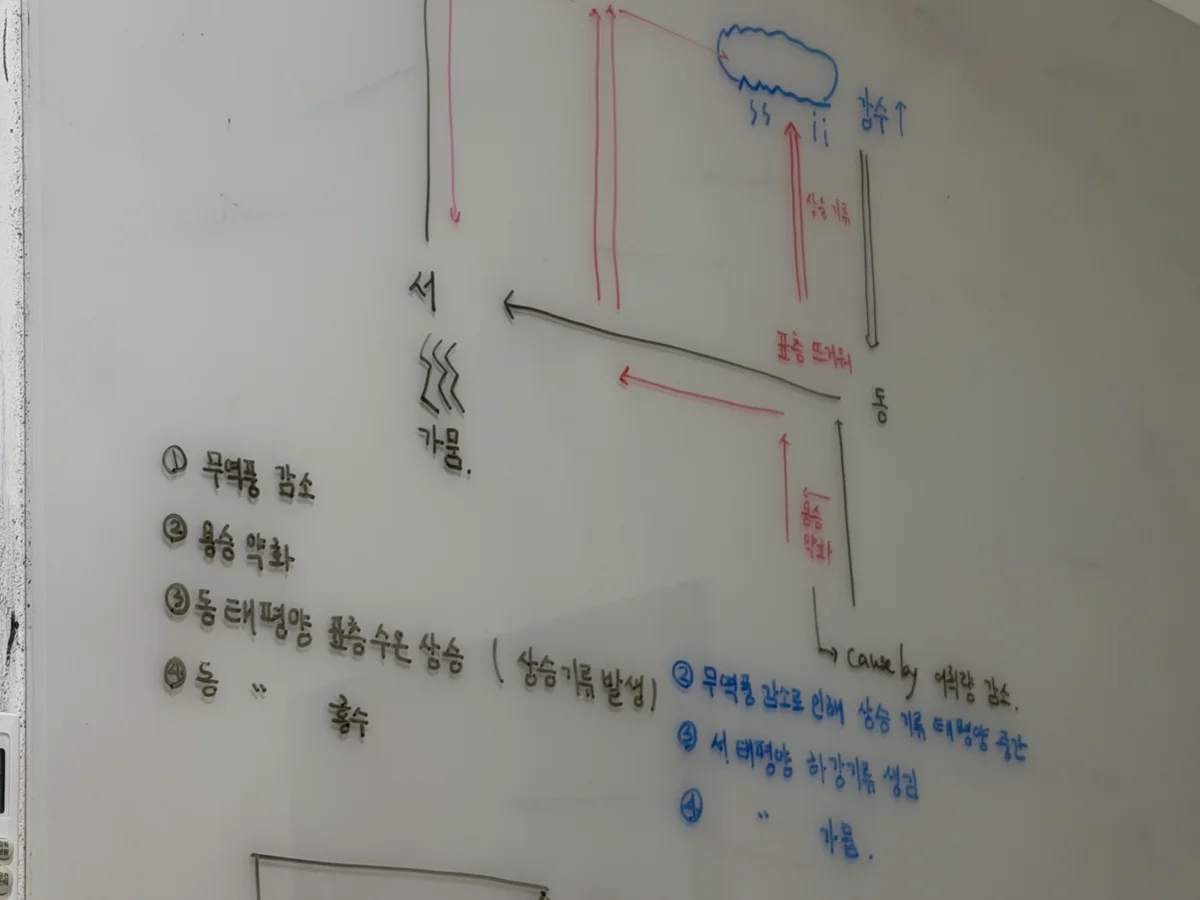 강수↑
상승 기류
서
표층 뜨거워
동
가뭄.
용승
약화
① 무역풍 감소
② 용승 약화
③ 동태평양 표층수온 상승 (상승기류 발생)
④ 동 〃 홍수
↳ cause by 어획량 감소.
② 무역풍 감소로 인해 상승 기류 태평양 중간
③ 서태평양 하강기류 생김
④ 〃 가뭄.